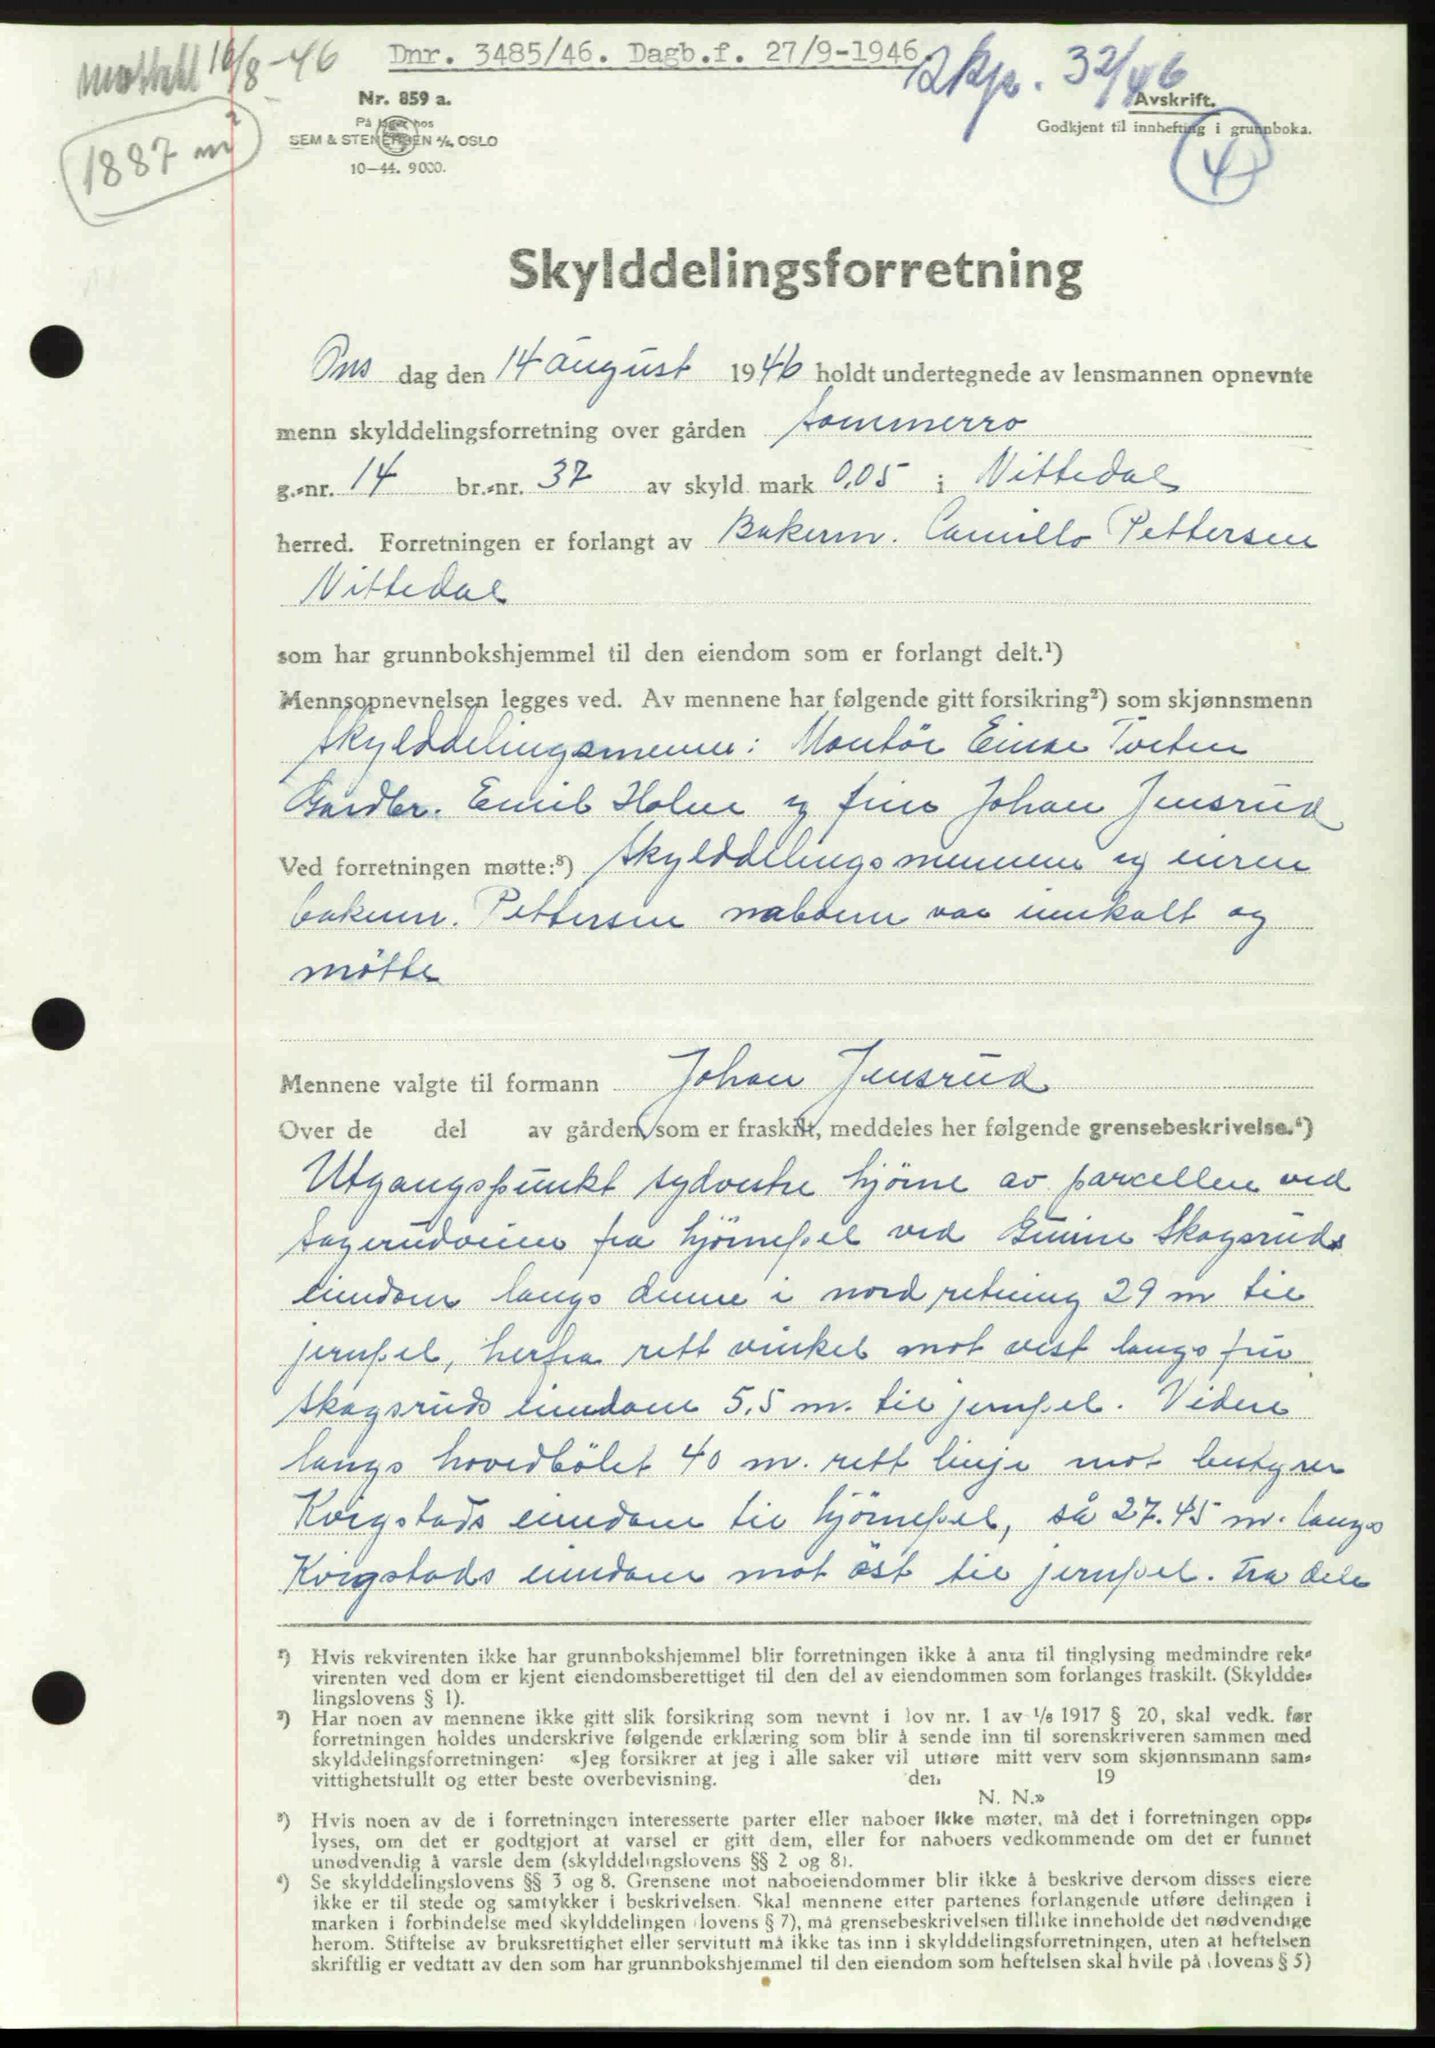 mottatt 16/8-46
Dnr. 3485/46. Dagb.f. 27/9-1946
Skp. 32/46
1887 m²
Nr. 859 a.
På lager hos
SEM & STENERSEN A/S, OSLO
10-44. 9000.
Avskrift.
Godkjent til innhefting i grunnboka.
4
Skylddelingsforretning
Ons dag den 14 august 1946 holdt undertegnede av lensmannen opnevnte
menn skylddelingsforretning over gården Sommerro
g.-nr. 14 br.-nr. 37 av skyld mark 0,05 i Nittedal
herred. Forretningen er forlangt av Bakerm. Camillo Pettersen
Nittedal
som har grunnbokshjemmel til den eiendom som er forlangt delt.¹)
Mennsopnevnelsen legges ved. Av mennene har følgende gitt forsikring²) som skjønnsmenn
Skylddelingsmenn: Montör Einar Tveten
Gardbr. Emil Holm og fru Johan Jensrud
Ved forretningen møtte:³) Skylddelingsmennene og eieren
bakerm. Pettersen naboene var innkalt og
mötte
Mennene valgte til formann Johan Jensrud
Over de del av gården, som er fraskilt, meddeles her følgende grensebeskrivelse.⁴)
Utgangspunkt sydvestre hjörne av parcellen ved
Sagerudveien fra hjörnepel ved Gunnar Skogsruds
eiendom langs denne i nord retning 29 m til
jernpel, herfra rett vinkel mot vest langs fru
Skogsruds eiendom 5,5 m. til jernpel. Videre
langs hovedbölet 40 m. rett linje mot bestyrer
Kvigstads eiendom til hjörnepel, så 27.45 m. langs
Kvigstads eiendom mot öst til jernpel. Fra dele
¹) Hvis rekvirenten ikke har grunnbokshjemmel blir forretningen ikke å anta til tinglysing medmindre rek-
virenten ved dom er kjent eiendomsberettiget til den del av eiendommen som forlanges fraskilt. (Skyldde-
lingslovens § 1).
²) Har noen av mennene ikke gitt slik forsikring som nevnt i lov nr. 1 av 1/6 1917 § 20, skal vedk. før
forretningen holdes underskrive følgende erklæring som blir å sende inn til sorenskriveren sammen med
skylddelingsforretningen: «Jeg forsikrer at jeg i alle saker vil utføre mitt verv som skjønnsmann sam-
vittighetsfullt og etter beste overbevisning. den 19
N. N.»
³) Hvis noen av de i forretningen interesserte parter eller naboer ikke møter, må det i forretningen opp-
lyses, om det er godtgjort at varsel er gitt dem, eller for naboers vedkommende om det er funnet
unødvendig å varsle dem (skylddelingslovens §§ 2 og 8).
⁴) Se skylddelingslovens §§ 3 og 8. Grensene mot naboeiendommer blir ikke å beskrive dersom disses eiere
ikke er til stede og samtykker i beskrivelsen. Skal mennene etter partenes forlangende utføre delingen i
marken i forbindelse med skylddelingen (lovens § 7), må grensebeskrivelsen tillike inneholde det nødvendige
herom. Stiftelse av bruksrettighet eller servitutt må ikke tas inn i skylddelingsforretningen, uten at heftelsen
skriftlig er vedtatt av den som har grunnbokshjemmel til den eiendom som heftelsen skal hvile på (lovens § 5)